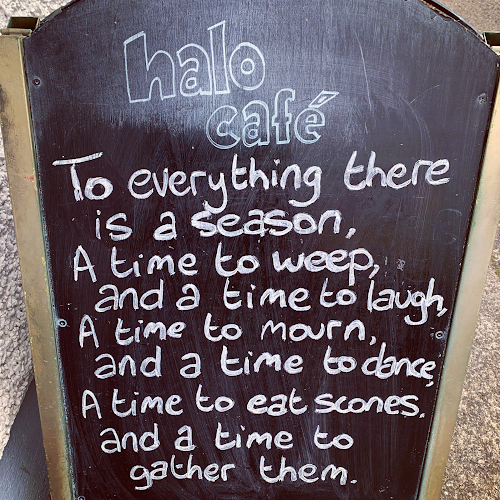 halo
café
To everything there
is a season,
A time to weep,
and a time to laugh,
A time to mourn,
and a time to dance,
A time to eat scones.
and a time to
gather them.